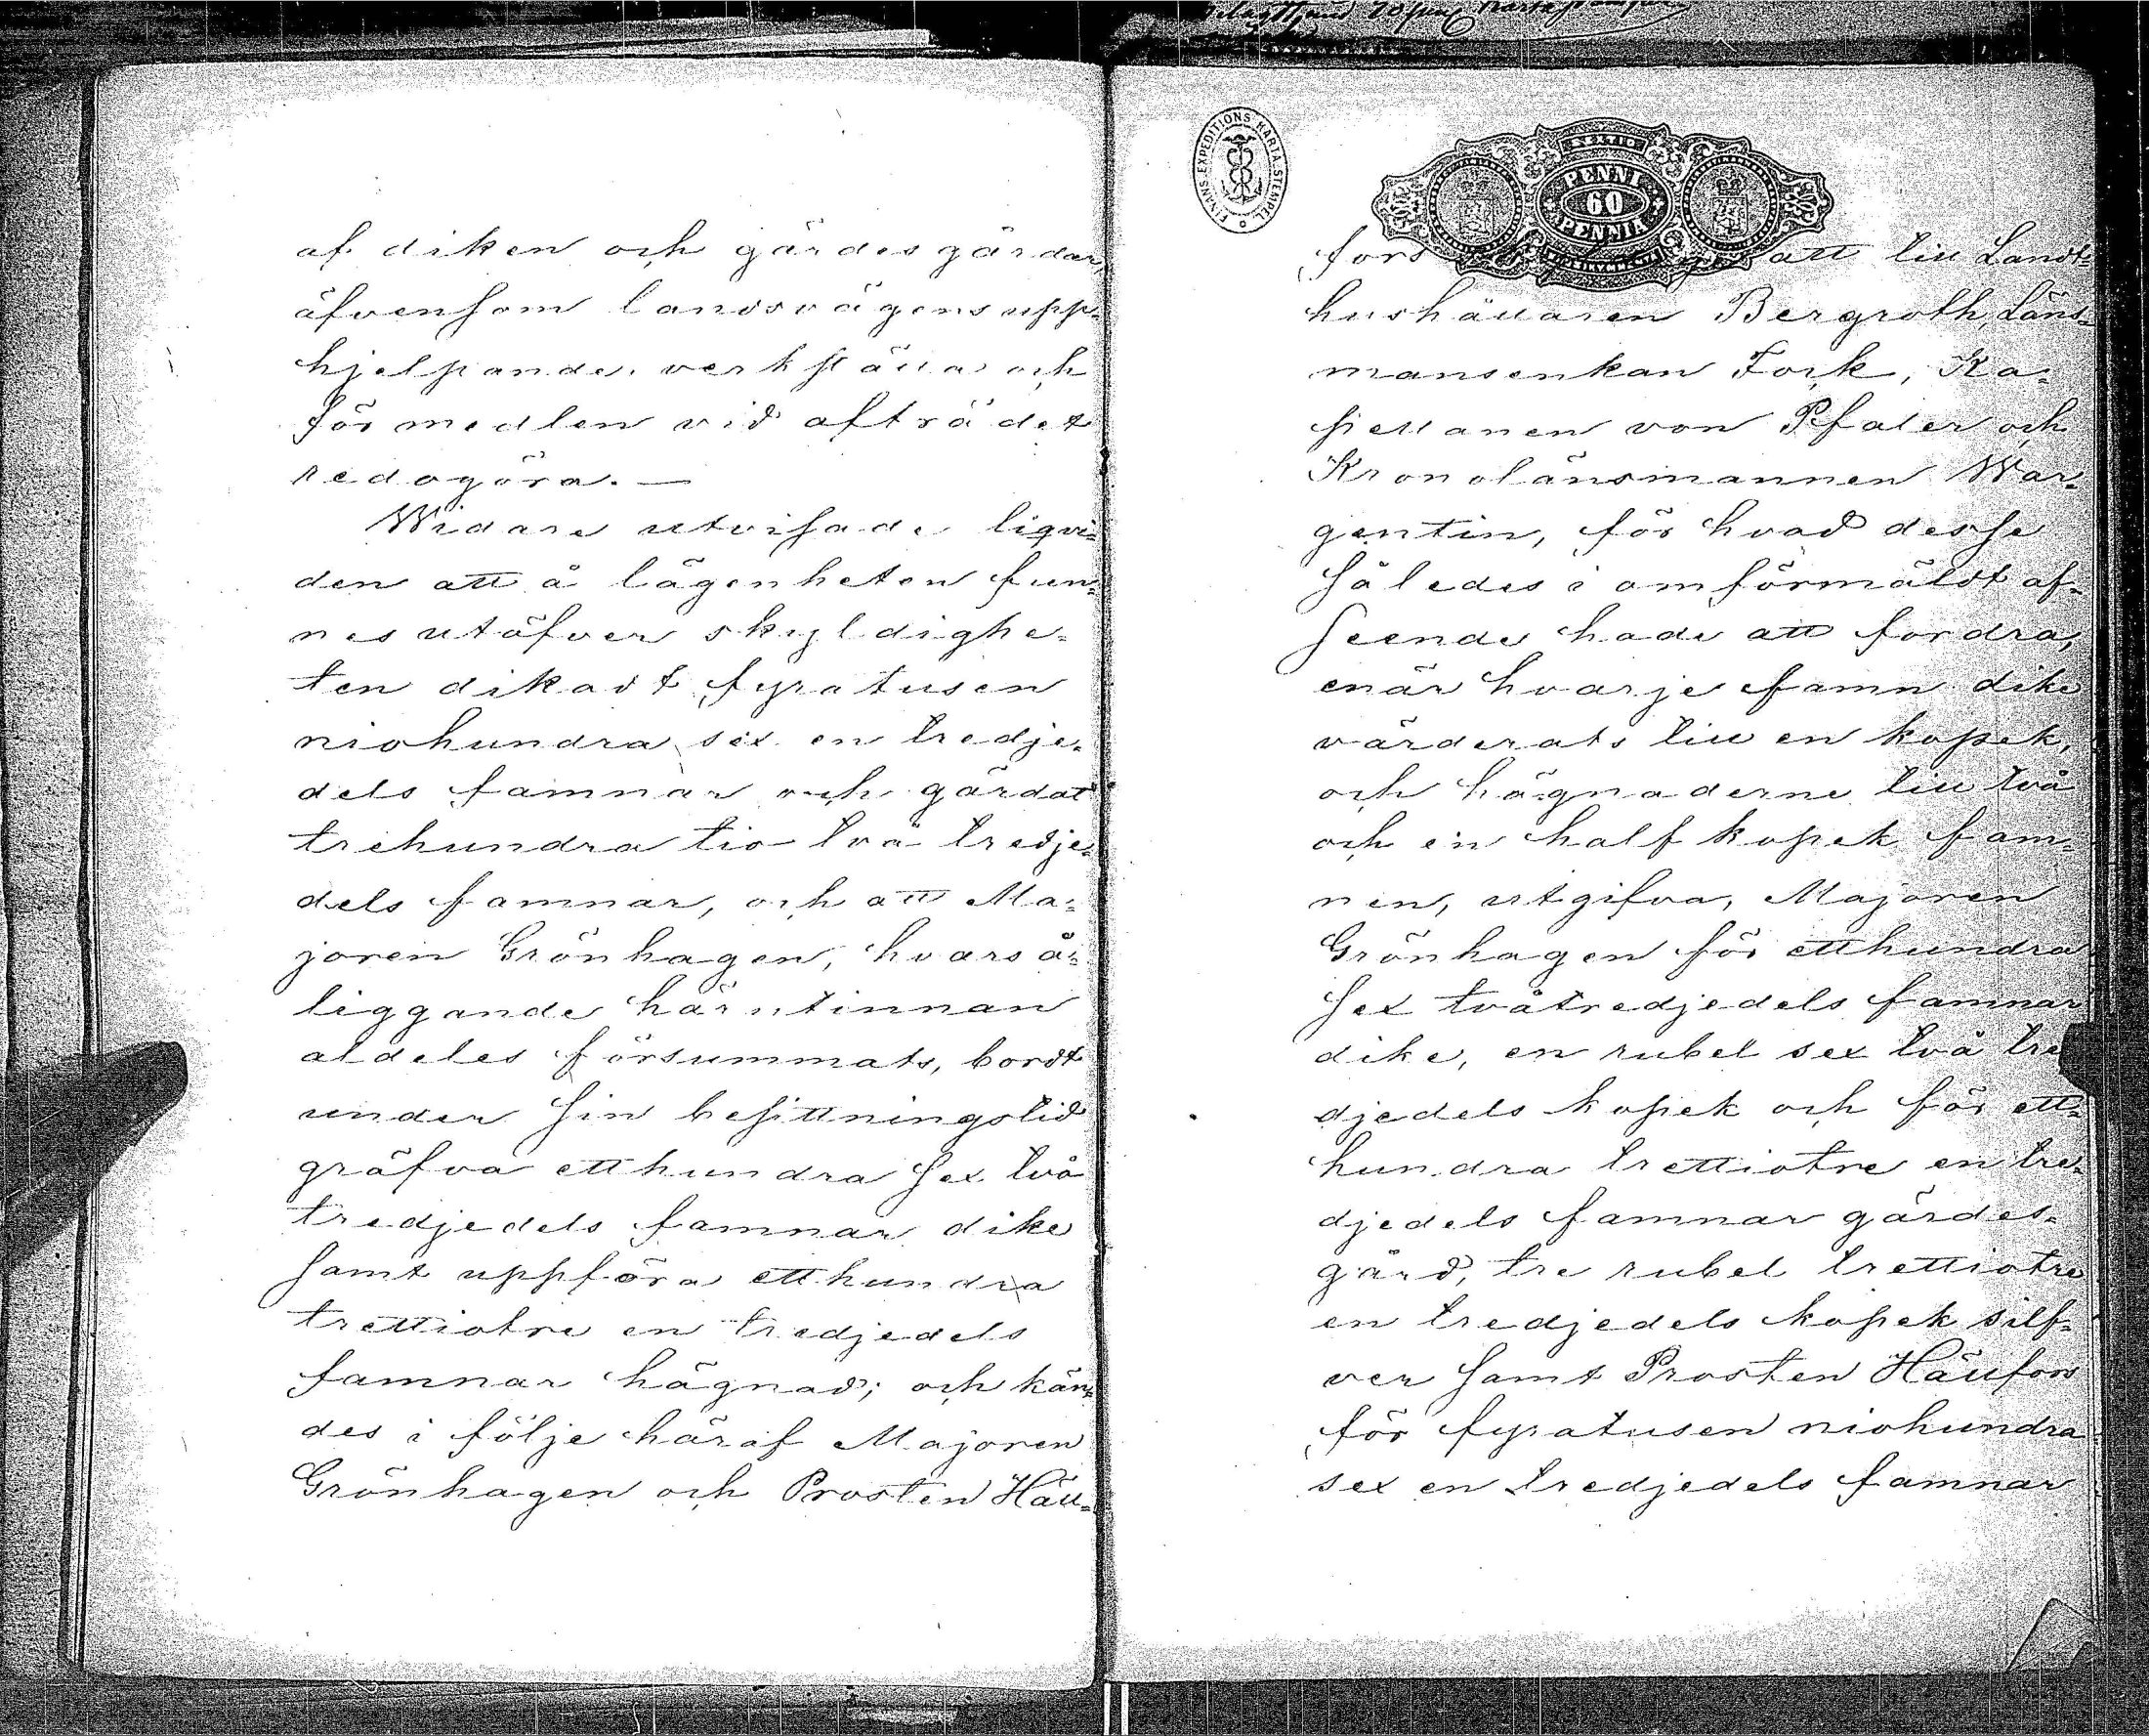 af diken och gärdesgårdar,
äfvensom landsvägens upp-
hjelpande, verkställa och
förmedlen vid afträdet
redogöra. —
Widare utvisade liqvi-
den att å lägenheten fun-
nes utöfver skyldighe-
ten dikadt fyratusen
niohundra sex en tredje-
dels famnar och gärdat
trehundra tio två tredje-
dels famnar, och att Ma-
joren Grönhagen, hvars å-
liggande härutinnan
aldeles försummats, bordt
under sin besittningstid
gräfva etthundra sex två
tredjedels famnar dike
samt uppföra etthundra
trettiotre en tredjedels
famnar hägnad; och kän-
des i följe häraf Majoren
Grönhagen och Prosten Häll-
FINANS-EXPEDITIONS KARTA-STEMPEL
SEXTIO
PENNI
60
PENNIÄ
fors att till Landt-
hushållaren Bergroth, Läns-
mansenkan Fork, Ka-
pellanen von Pfaler och
Kronolänsmannen War-
gentin, för hvad desse
således i omförmäldt af-
seende hade att fordra,
enär hvarje famn dike
värderats till en kopek,
och hägnaderne till två
och en half kopek fam-
nen, utgifva, Majoren
Grönhagen för etthundra
sex tvåtredjedels famnar
dike, en rubel sex två tre
djedels kopek och för ett-
hundra trettiotre en tre-
djedels famnar gärdes-
gård, tre rubel trettiotre
en tredjedels kopek silf-
ver samt Prosten Hällfors
för fyratusen niohundra
sex en tredjedels famnar